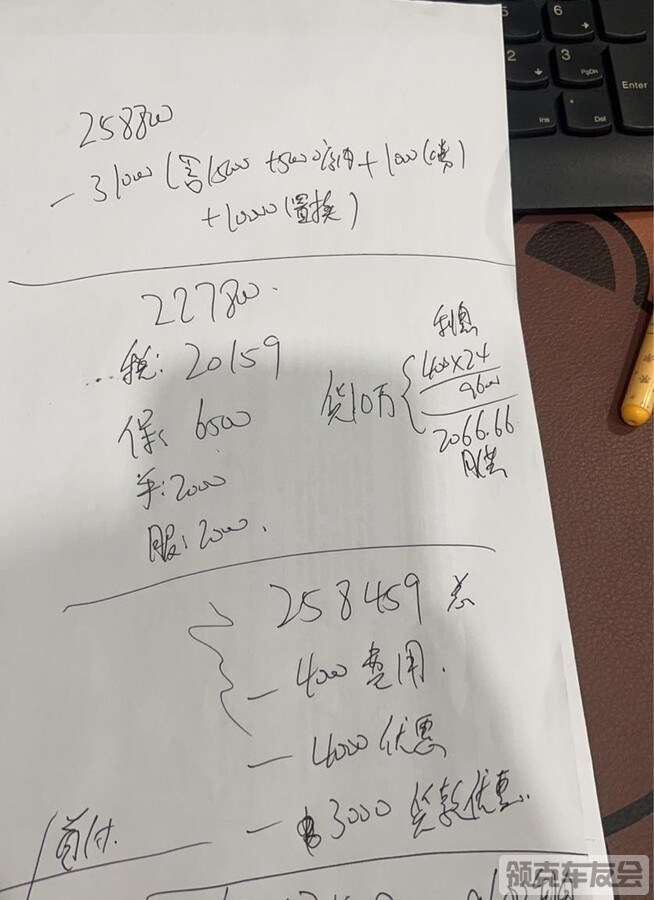 258800
-31000(含15000+5000
+10000(置换)
227800.
...税:20159
保:6500
手:2000
服:2000.
利息
400×24
9600
贷10万
2066.66
月供
258459 总
-4000 费用.
-4000 优惠
-3000 贷款优惠.
首付.
5
6
2
3
PgDn
Enter
Ins
Del
领克车友会